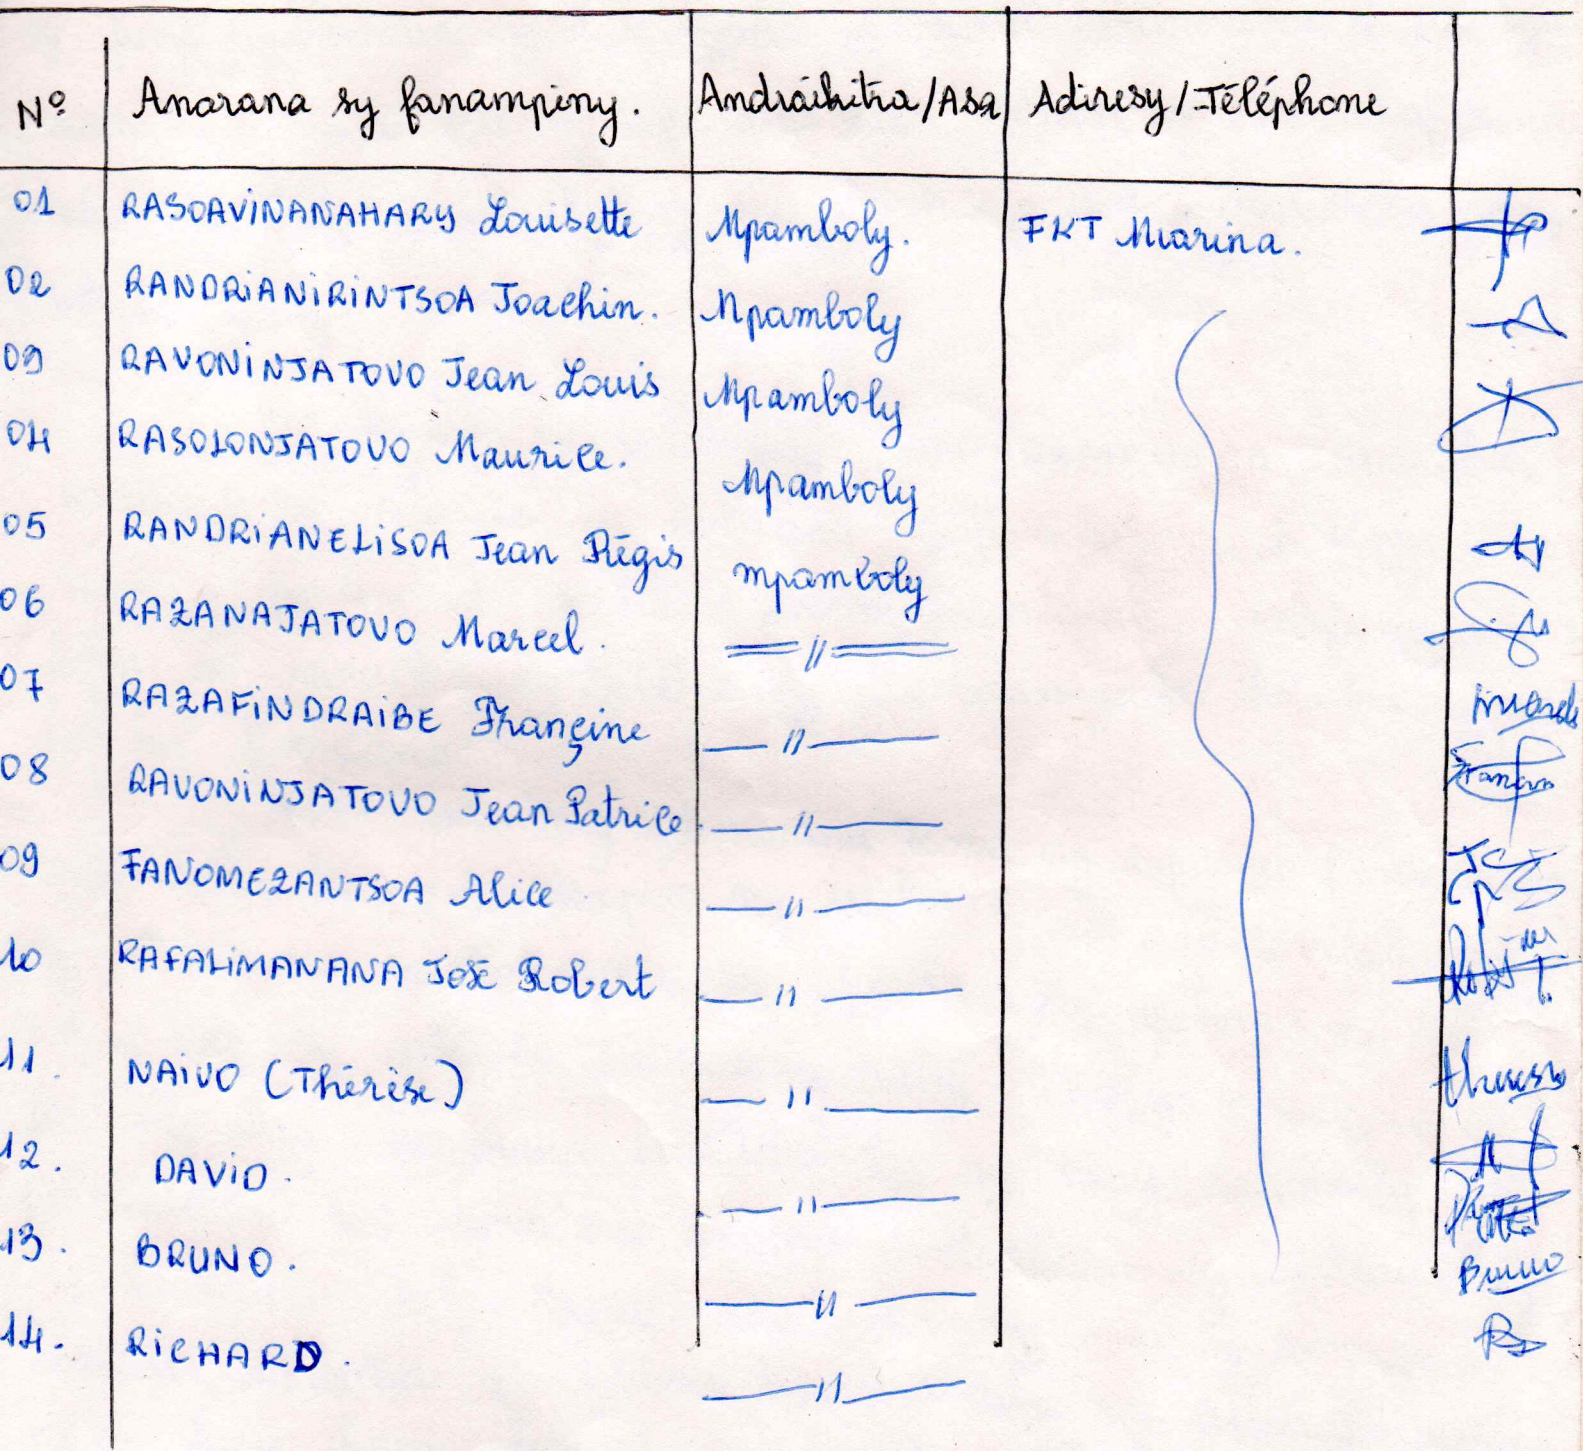 Nº Anarana sy fanampiny. Andraikitra/Asa Adiresy/Téléphone
01 RASOAVINANAHARY Louisette Mpamboly. FKT Miarina.
02 RANDRIANIRINTSOA Joachin. Mpamboly
03 RAVONINJATOVO Jean Louis Mpamboly
04 RASOLONJATOVO Maurice. Mpamboly
05 RANDRIANELISOA Jean Régis mpamboly
06 RAZANAJATOVO Marcel. — // —
07 RAZAFINDRAIBE Françine — // — 
08 RAVONINJATOVO Jean Patrice — // —
09 FANOMEZANTSOA Alice — // —
10 RAFALIMANANA José Robert — // —
11. NAIVO (Thérèse) — // —
12. DAVID. — // —
13. BRUNO. — // — Bruno
14. RICHARD. — // —